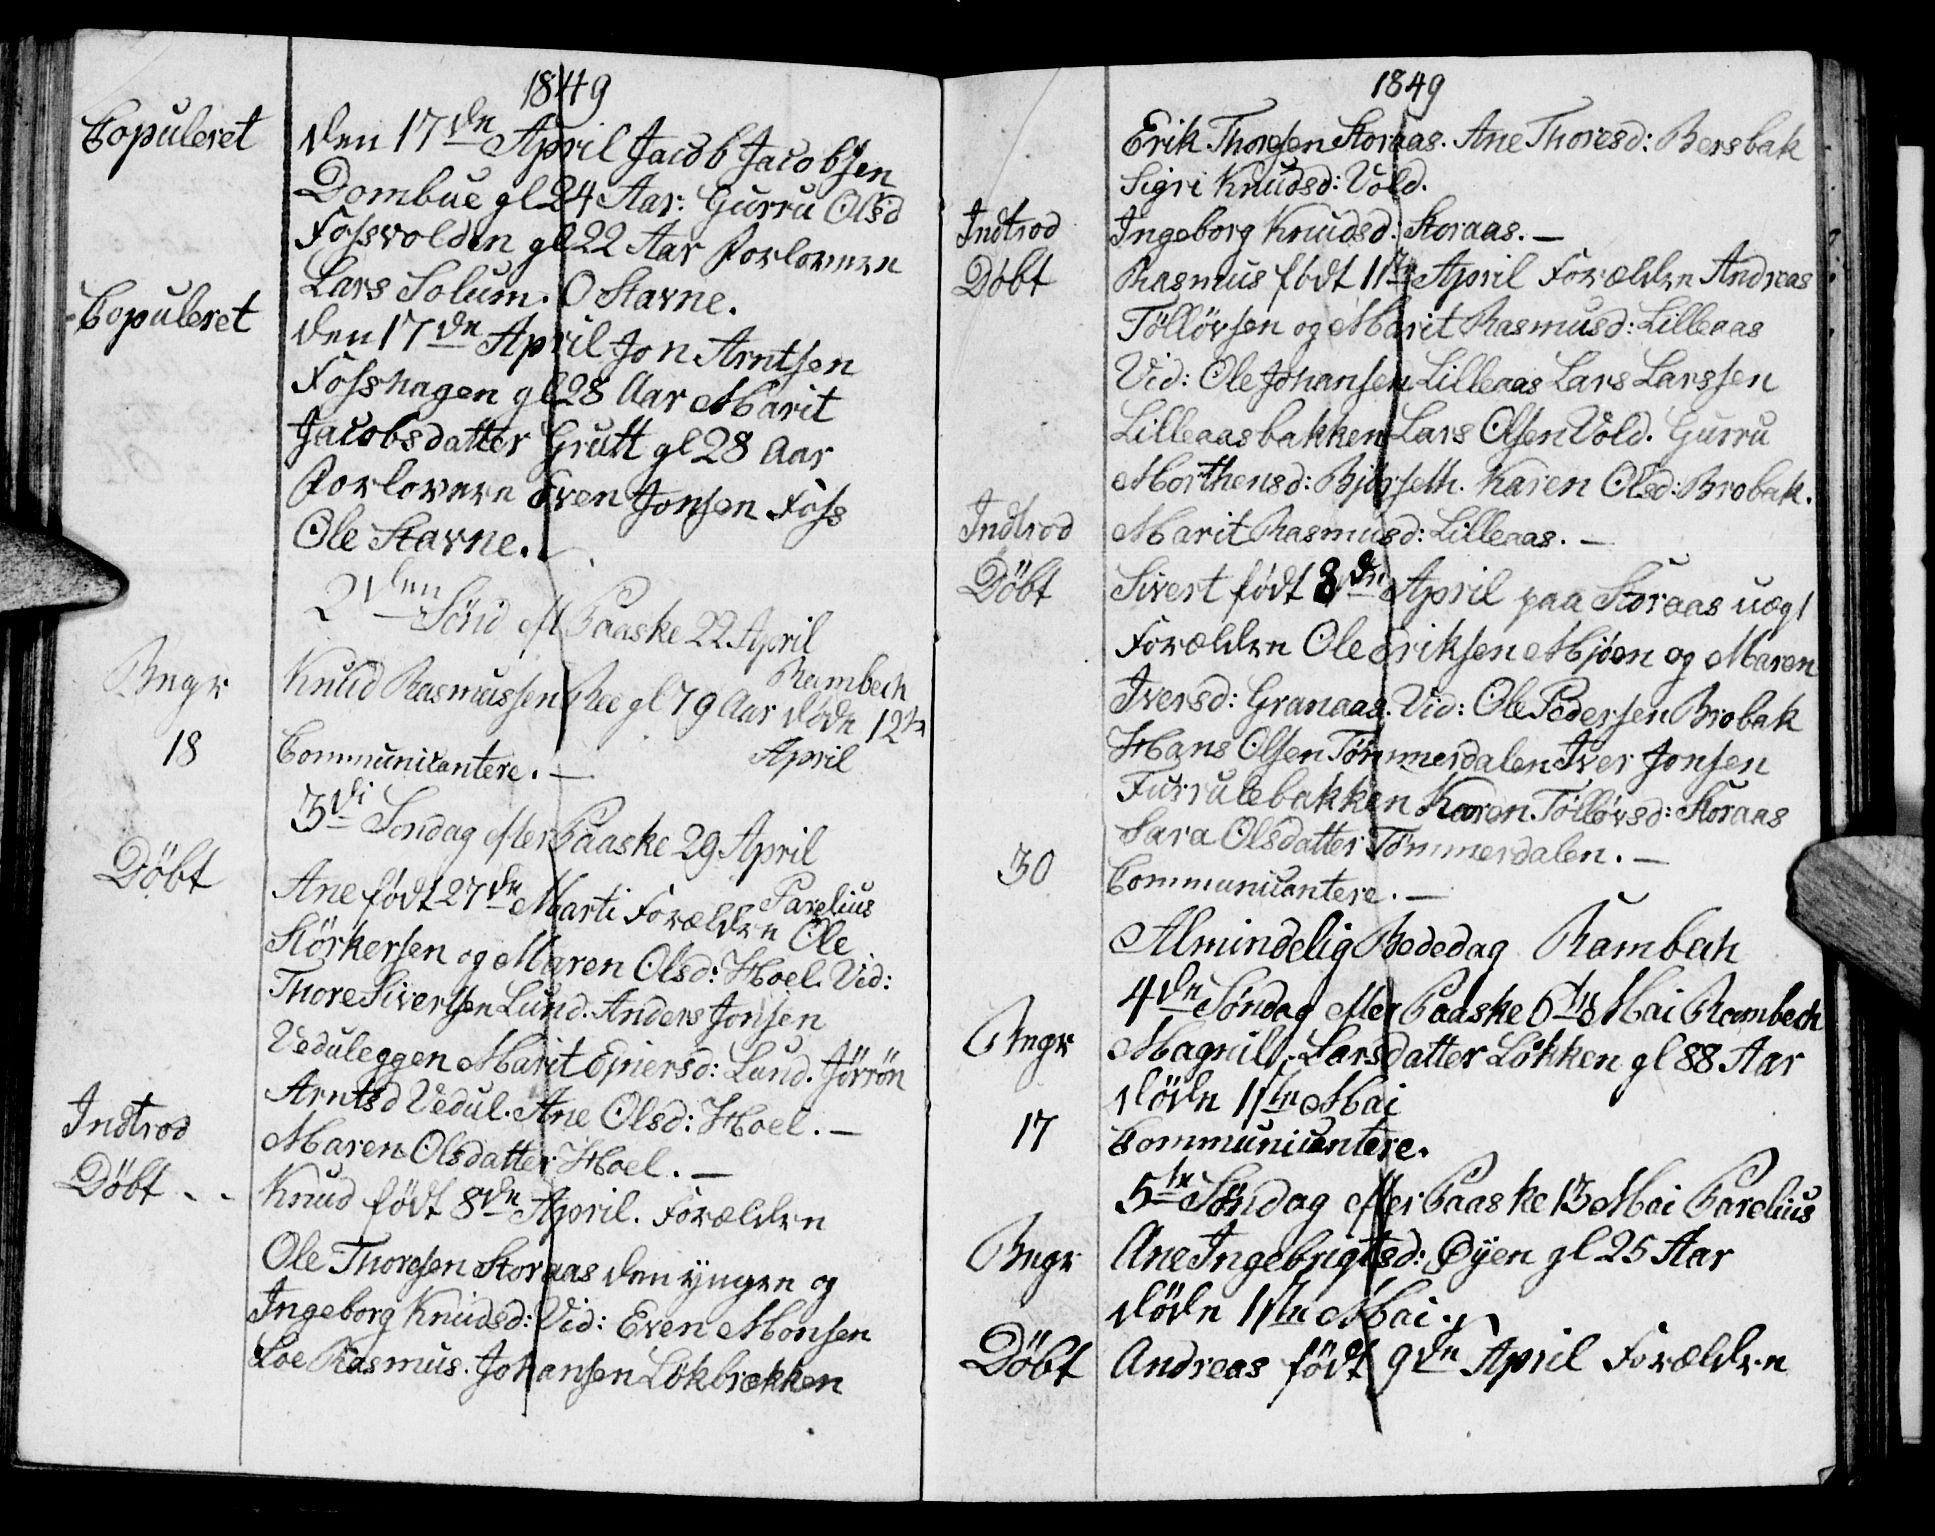 1849
Copuleret den 17de April Jacob Jacobsen
Dombue gl 24 Aar: Gurru Olsd
Fossvolden gl 22 Aar Forlovere
Lars Solum. O Stavne.
Copuleret den 17de April Jon Arntsen
Fosshagen gl 28 Aar Marit
Jacobsdatter Grutt gl 28 Aar
Forlovere Even Jonsen Foss
Ole Stavne.
2den Sönd eft Paaske 22 April
Rambech
Begr Knud Rasmussen Ree gl 79 Aar döde 12te
April
18 Communicantere. —
3di Sondag efter Paaske 29 April
Parelius
Döbt Ane födt 27de Marti Forældre Ole
Störkersen og Maren Olsd: Hoel. Vid:
Thore Sivertsen Lund. Anders Jonsen
Veduleggen Marit Ejnersd: Lund. Jörrön
Arntsd Vedul. Ane Olsd: Hoel. —
Indtrod Maren Olsdatter Hoel. —
Döbt - - Knud födt 8de April. Forældre
Ole Thoresen Storaas den yngre og
Ingeborg Knudsd: Vid: Even Monsen
Loe Rasmus. Johansen Lökbrækken
1849
Erik Thoresen Storaas. Ane Thoresd: Bersbak
Sigri Knudsd: Vold.
Indtrod Ingeborg Knudsd: Storaas. —
Döbt Rasmus födt 11te April Forældre Andreas
Töllövsen og Marit Rasmusd: Lilleaas
Vid: Ole Johansen Lilleaas Lars Larssen
Lilleaasbakken Lars Olsen Vold. Gurru
Morthensd: Björseth. Karen Olsd: Brobak.
Indtrod Marit Rasmusd: Lilleaas. —
Döbt Sivert födt 8de April paa Storaas uægt
Forældre Ole Eriksen Mjöen og Maren
Iversd: Granaas. Vid: Ole Pedersen Brobak
Hans Olsen Tömmerdalen Iver Jonsen
Furrulebakken Karen. Töllövsd: Storaas
Sara Olsdatter Tömmerdalen. —
30 Communicantere. —
Almindelig Bededag Rambech
4de Söndag efter Paaske 6te Mai Rambech
Begr Magnild Larsdatter Lökken gl 88 Aar
döde 1ste Mai
17 Communicantere.
5te Söndag efter Paaske 13 Mai Parelius
Begr Ane Ingebrigtsd: Öyen gl 25 Aar
döde 1ste Mai.
Döbt Andreas födt 9de April Forældre